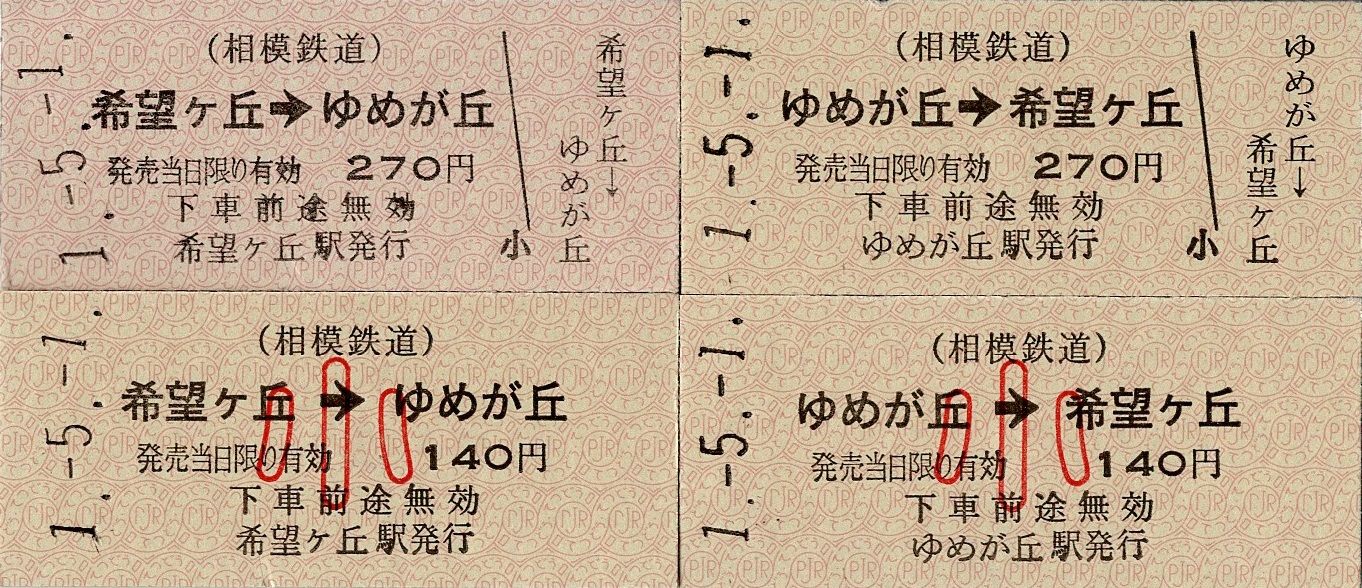 1.-5.-1.
(相模鉄道)
希望ヶ丘→ゆめが丘
発売当日限り有効 270円
下車前途無効
希望ヶ丘駅発行
小
希望ヶ丘→
ゆめが丘
1.-5.-1.
(相模鉄道)
ゆめが丘→希望ヶ丘
発売当日限り有効 270円
下車前途無効
ゆめが丘駅発行
小
ゆめが丘→
希望ヶ丘
1.-5.-1.
(相模鉄道)
希望ヶ丘→ゆめが丘
発売当日限り有効 140円
下車前途無効
希望ヶ丘駅発行
小
1.-5.-1.
(相模鉄道)
ゆめが丘→希望ヶ丘
発売当日限り有効 140円
下車前途無効
ゆめが丘駅発行
小